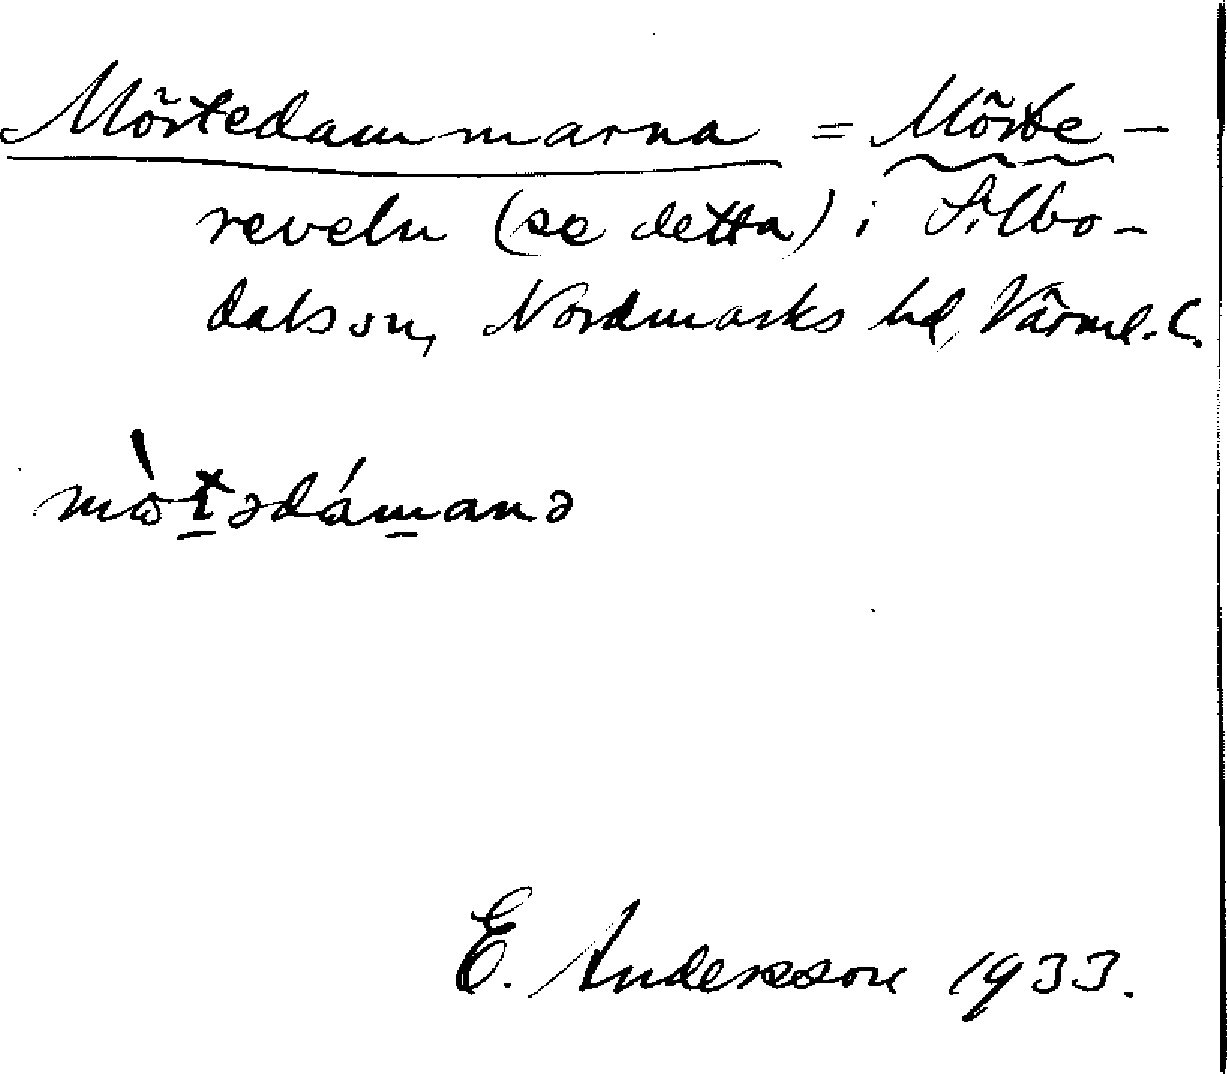 Mörtedammarna = Mörte-
reveln (se detta) i Silbo-
dals sn, Nordmarks hd, Värml. l.
E. Andersson 1933.